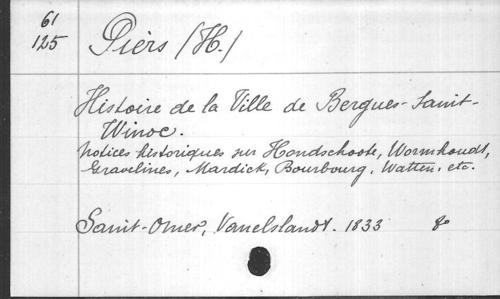 61
125
Pièrs (H.)
Histoire de la Ville de Bergues-Saint-
Winoc.
Notices historiques sur Hondschoote, Wormhoudt,
Gravelines, Mardick, Bourbourg, Watten, etc.
Saint-Omer, Vanelslandt. 1833